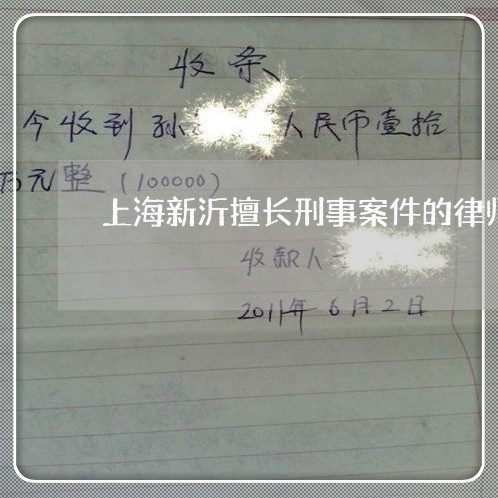 收条
今收到孙 人民币壹拾
万元整(100000)
上海新沂擅长刑事案件的律师
收款人
2011年6月2日